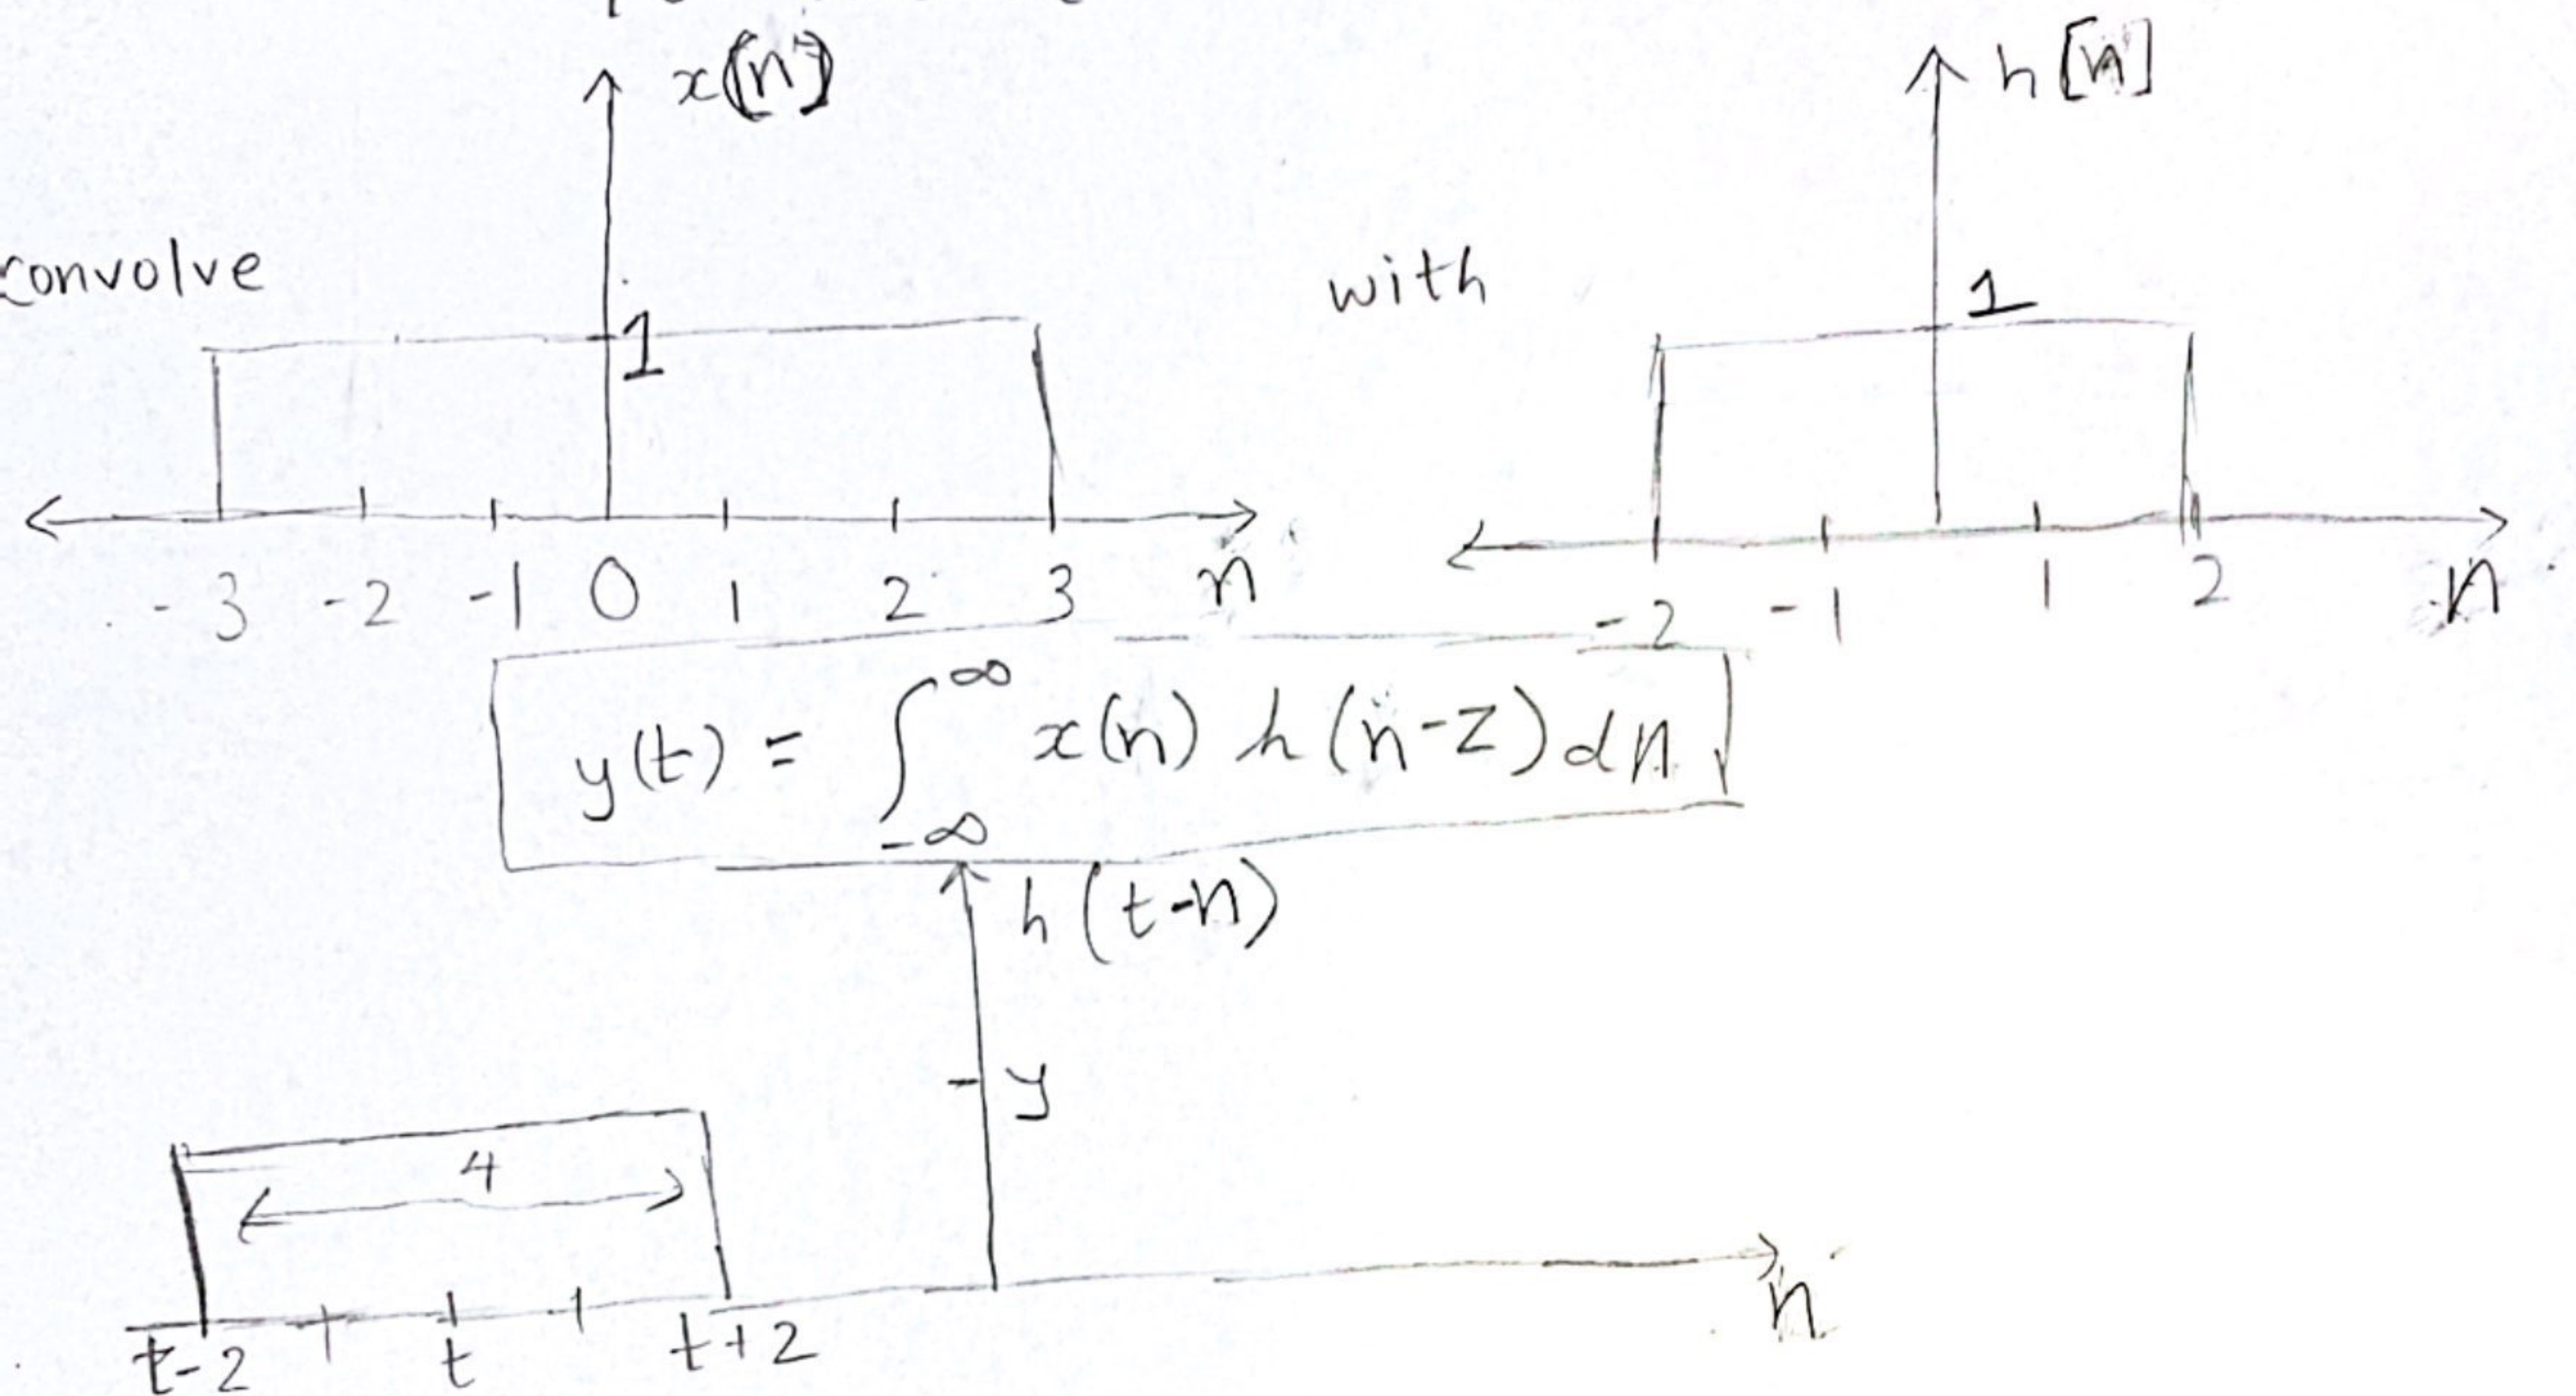 x[n]
h[n]
convolve
1
with
1
-3 -2 -1 0 1 2 3 n
-2 -1 1 2 n
y(t) = ∫_{-∞}^{∞} x(n) h(n-z) dn
h(t-n)
y
4
t-2 t t+2 n